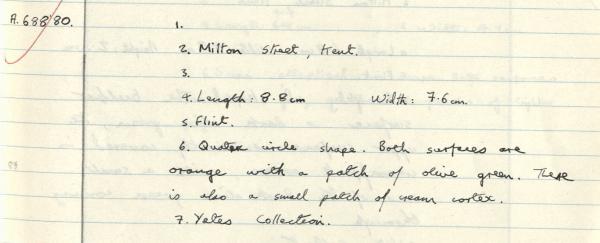 A.688'80.
1.
2. Milton Street, Kent.
3.
4. Length: 8.8cm Width: 7.6cm.
5. Flint.
6. Quater circle shape. Both surfaces are
orange with a patch of olive green. There
is also a small patch of cream cortex.
7. Yates Collection.